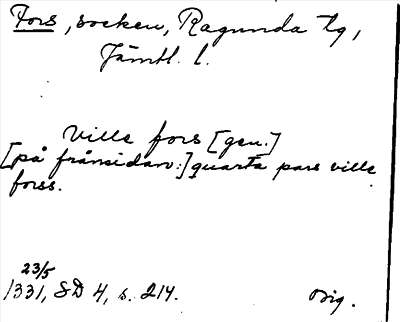 Fors, socken, Ragunda tg,
Jämtl. l.
Ville fors [gen.]
[på frånsidan:] quarta pars ville
forss.
23/5
1331, SD 4, s. 214.
Orig.